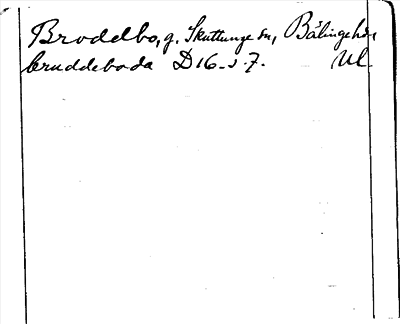 Broddbo, g. Skuttunge sn, Bälinge hd,
bruddeboda D 16 s. 7. Ul.